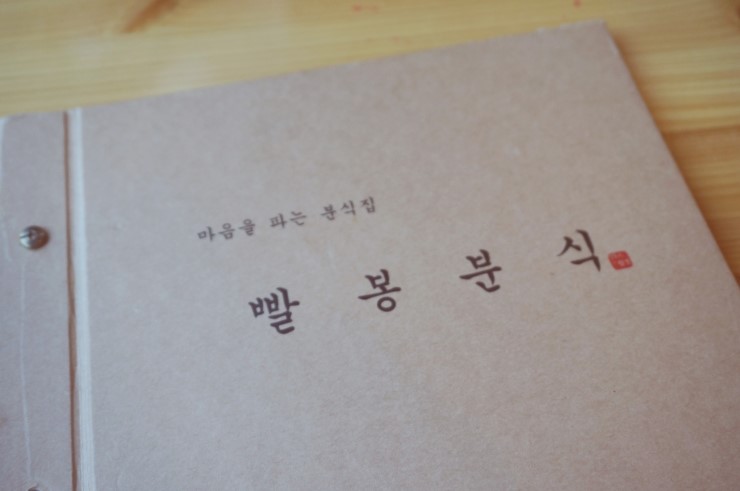 마음을 파는 분식집
빨봉분식